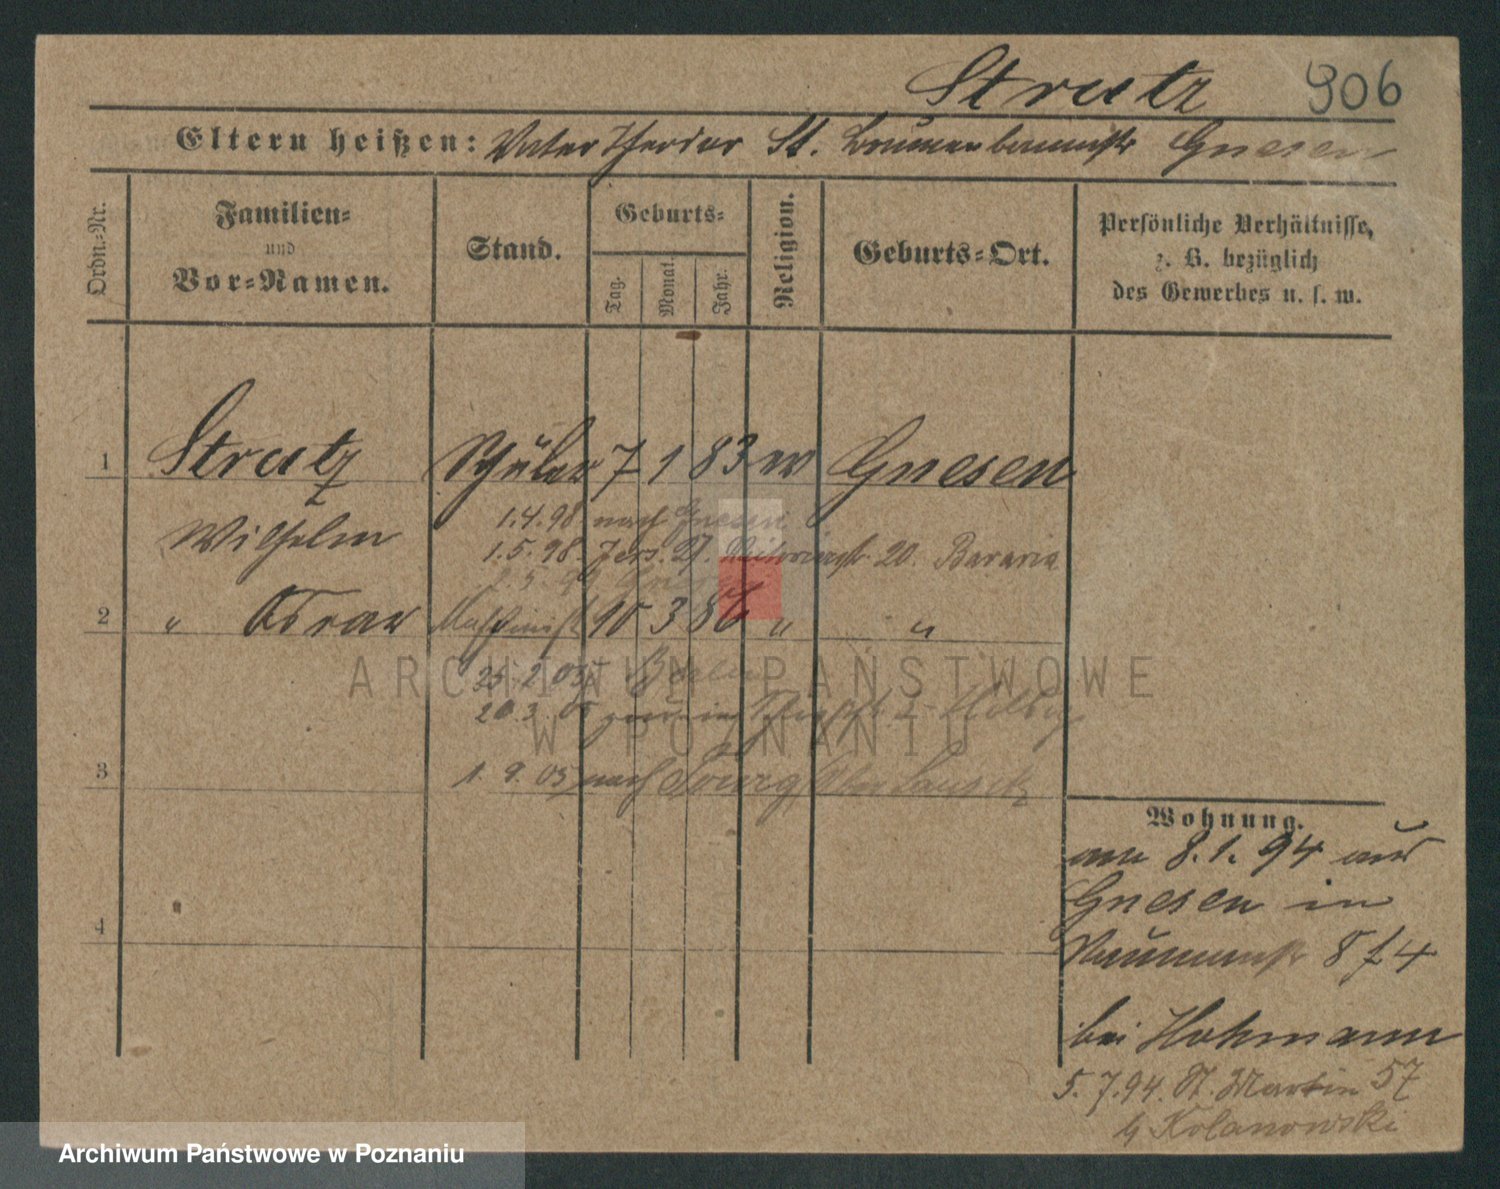 Strutz 906
Eltern heißen: Vater Theodor St. Brunnenbaumstr Gnesen
Ordn.-Nr.
Familien-
und
Vor-Namen.
Stand.
Geburts-
Tag.
Monat.
Jahr.
Religion.
Geburts-Ort.
Persönliche Verhältnisse,
z. B. bezüglich
des Gewerbes u. s. w.
1 Strutz Schüler 7 1 83 ev Gnesen
Wilhelm
1.4.98. nach Gnesen
1.5.98. 20. Bavaria
2 " Oskar 10 3 86 " "
25.2.05 Berlin
20.3.05
ARCHIWUM PAŃSTWOWE
W POZNANIU
3
1.9.05 nach Ober Lausitz
4
Wohnung.
am 8.1.94 aus
Gnesen in
8 f 4
bei Hohmann
5.7.94. St. Martin 57
b/ Kolanowski
Archiwum Państwowe w Poznaniu